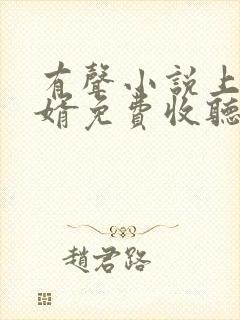 有聲小說上
婿免費收聽
趙君路